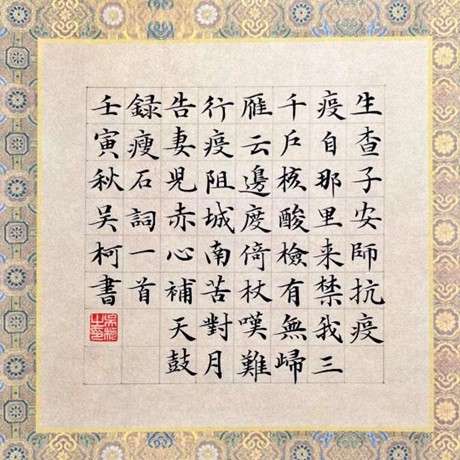 生查子安師抗疫
疫自那里来禁我三
千戶核酸檢有無歸
雁云邊度倚杖嘆難
行疫阻城南苦對月
告妻兒赤心補天鼓
録瘦石詞一首
壬寅秋吴柯書